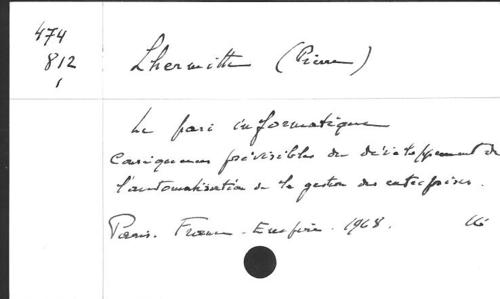 474
812
1
Lhermitte (Pierre)
Le pari informatique
Conséquences prévisibles du développement de
l'automatisation de la gestion des entreprises.
Paris. France-Empire. 1968.